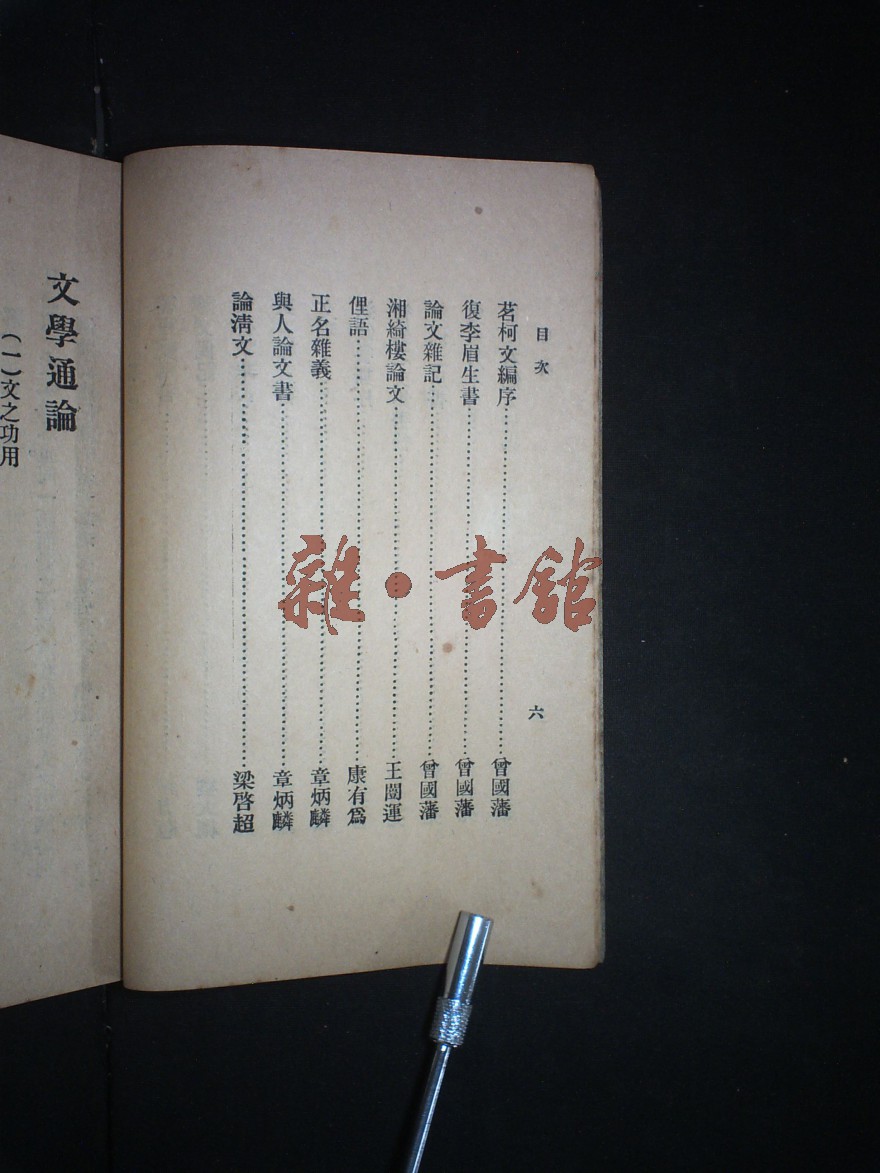 目次
六
茗柯文編序……曾國藩
復李眉生書……曾國藩
論文雜記……曾國藩
湘綺樓論文……王闓運
俚語……康有爲
正名雜義……章炳麟
與人論文書……章炳麟
論淸文……梁啓超
文學通論
(一)文之功用
雜·書館